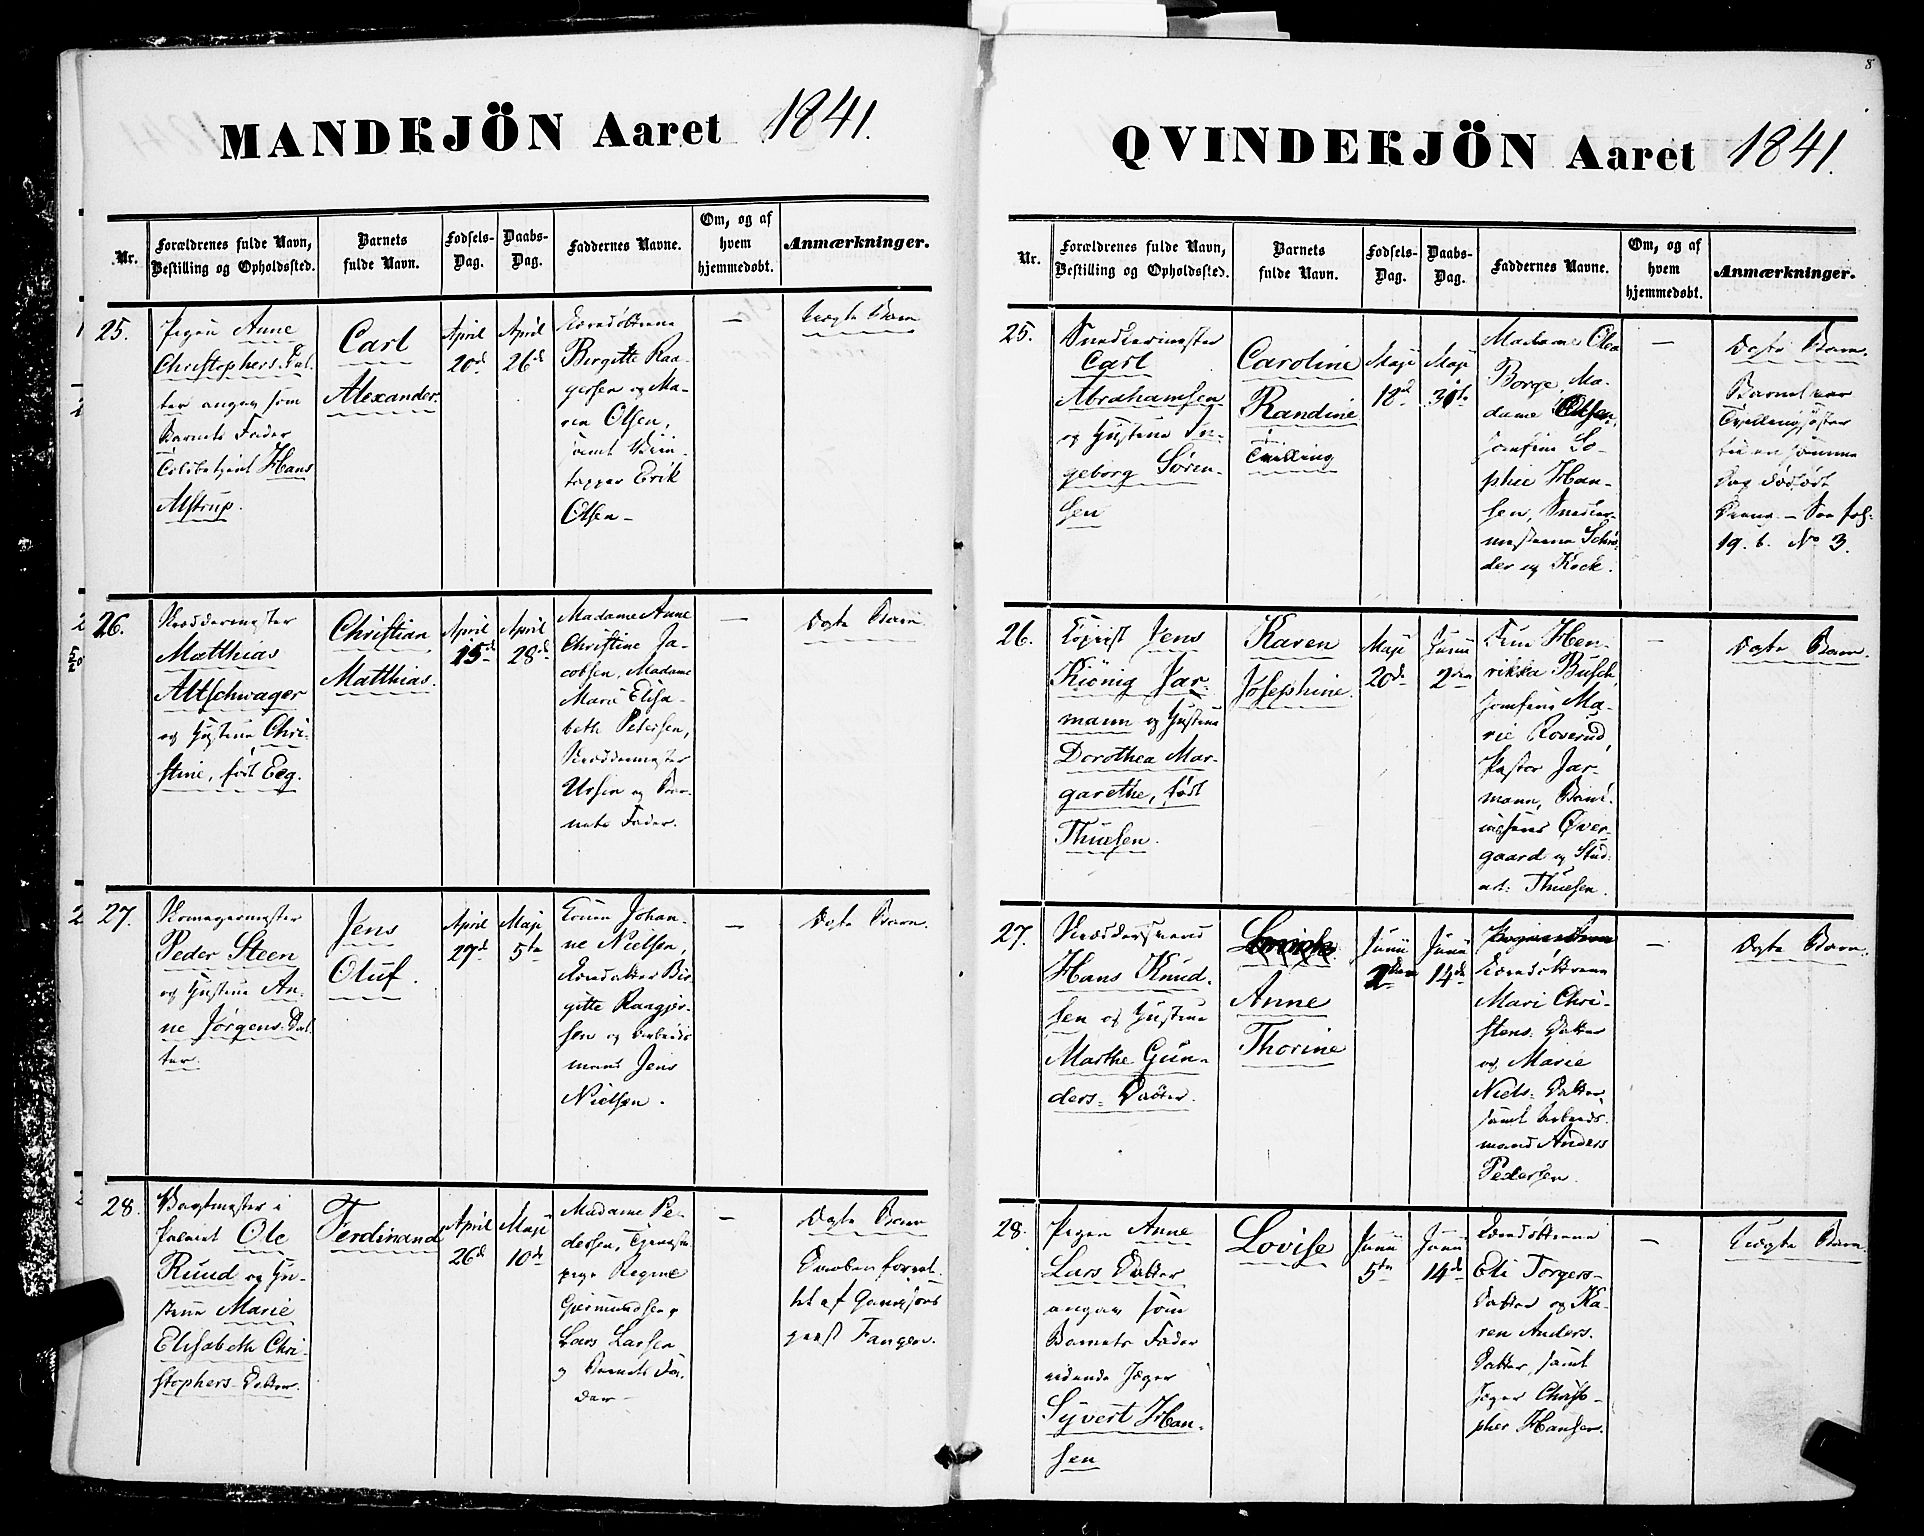 8
MANDKJÖN Aaret 1841.
Nr.
Forældrenes fulde Navn,
Bestilling og Opholdssted.
Barnets
fulde Navn.
Fødsels-
Dag.
Daabs-
Dag.
Faddernes Navne.
Om, og af
hvem
hjemmedøbt.
Anmærkninger.
25.
Pigen Anne
Christophers-Dat-
ter angav som
Barnets Fader
Hans
Alstrup.
Carl
Alexander.
April
20de
April
26de
Birgitte Raa-
gersen og Ma-
ren Olsen,
samt
Erik
Olsen -
—
Uægte Barn
26.
Skræddermester
Matthias
Altschwager
og Hustrue Chri-
stine, født Eeg.
Christian
Matthias.
April
15de
April
28de
Madame Anne
Christine Ja-
cobsen, Madame
Marie Elisa-
beth Petersen,
Skræddermester
og Bar-
nets Fader.
—
Ægte Barn
27.
Peder Steen
og Hustrue An-
ne Jørgens-Dat-
ter.
Jens
Oluf.
April
27de
Maji
5te
Konen Johan-
ne Nielsen,
Bir-
gitte Raagjer-
sen og Arbeids
mand Jens
Nielsen.
—
Ægte Barn.
28.
Vagtmester i
Ole
Rund og Hu-
strue Marie
Elisabeth Chri-
stophers-Datter.
Ferdinand
April
26de
Maji
10de
Madame Pe-
dersen, Tjeneste
pige Regine
Gjermundsen,
Lars Larsen
og Barnets Fa-
der -
—
Ægte Barn
Daaben forret-
tet af
præst Fangen.
QVINDEKJÖN Aaret 1841.
Nr.
Forældrenes fulde Navn,
Bestilling og Opholdssted.
Barnets
fulde Navn.
Fødsels-
Dag.
Daabs-
Dag.
Faddernes Navne.
Om, og af
hvem
hjemmedøbt.
Anmærkninger.
25.
Snedkermester
Carl
Abrahamsen
og Hustrue In-
geborg Søren-
sen
Caroline
Randine
Tvilling
Maji
18de
Maji
31te
Madame Olea
Borge, Ma-
dame Olsen,
Jomfrue So-
phie Han-
sen, Snedker-
mesterne Schrø-
der og Kock.
—
Ægte Barn.
Barnet var
Tvillingsøster
til en samme
Dag dødfødt
Dreng. - See fol:
19. b. No 3.
26.
Copiist Jens
Kiönig Jar-
mann og Hustrue
Dorothea Mar-
garethe, født
Thuesen.
Karen
Josephine.
Maji
20de
Junii
2den
Fru Hen-
rikka Busch,
Jomfrue Ma-
rie Roverud,
Pastor Jar-
mann,
Øver-
gaard og Stud:
Thuesen.
—
Ægte Barn.
27.
Skræddersvend
Hans Knud-
sen og Hustrue
Marthe Gun-
ders-Datter.
Anne
Thorine
Junii
2den
Junii
14de
Mari Chri-
stens-Datter
og Marie
Niels-Datter,
samt Arbeids-
mand Anders
Pedersen.
—
Ægte Barn.
28.
Pigen Anne
Lars Datter
angav som
Barnets Fader
ridende Jæger
Syvert Han-
sen
Lovise
Junii
5te
Junii
14de
Eli Torgers-
Datter og Ka-
ren Anders-
Datter, samt
Jæger Christo-
pher Hansen.
—
Uægte Barn.